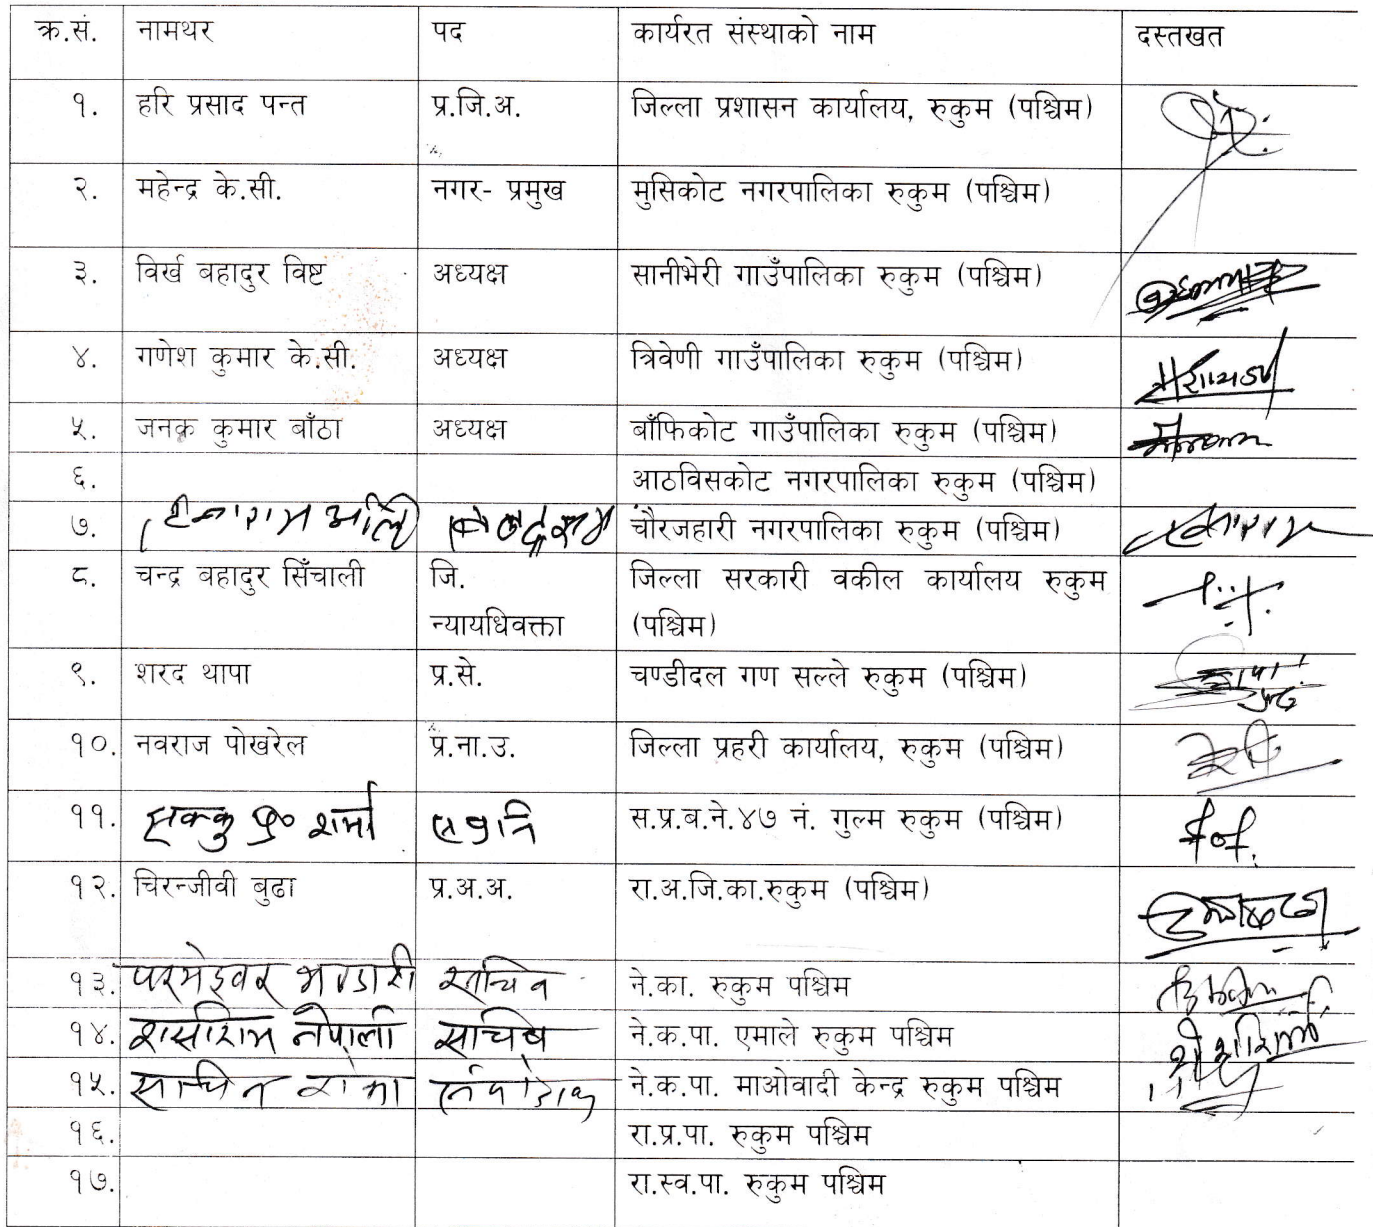 क्र.सं. नामथर पद कार्यरत संस्थाको नाम दस्तखत
१. हरि प्रसाद पन्त प्र.जि.अ. जिल्ला प्रशासन कार्यालय, रुकुम (पश्चिम)
२. महेन्द्र के.सी. नगर- प्रमुख मुसिकोट नगरपालिका रुकुम (पश्चिम)
३. विर्ख बहादुर विष्ट अध्यक्ष सानीभेरी गाउँपालिका रुकुम (पश्चिम)
४. गणेश कुमार के.सी. अध्यक्ष त्रिवेणी गाउँपालिका रुकुम (पश्चिम)
५. जनक कुमार बाँठा अध्यक्ष बाँफिकोट गाउँपालिका रुकुम (पश्चिम)
६. आठविसकोट नगरपालिका रुकुम (पश्चिम)
७. चौरजहारी नगरपालिका रुकुम (पश्चिम)
८. चन्द्र बहादुर सिँचाली जि. जिल्ला सरकारी वकील कार्यालय रुकुम
न्यायधिवक्ता (पश्चिम)
९. शरद थापा प्र.से. चण्डीदल गण सल्ले रुकुम (पश्चिम)
१०. नवराज पोखरेल प्र.ना.उ. जिल्ला प्रहरी कार्यालय, रुकुम (पश्चिम)
११. शर्मा स.प्र.ब.ने.४७ नं. गुल्म रुकुम (पश्चिम)
१२. चिरन्जीवी बुढा प्र.अ.अ. रा.अ.जि.का.रुकुम (पश्चिम)
१३. परमेश्वर भण्डारी सचिव ने.का. रुकुम पश्चिम
१४. नेपाली सचिव ने.क.पा. एमाले रुकुम पश्चिम
१५. ने.क.पा. माओवादी केन्द्र रुकुम पश्चिम
१६. रा.प्र.पा. रुकुम पश्चिम
१७. रा.स्व.पा. रुकुम पश्चिम